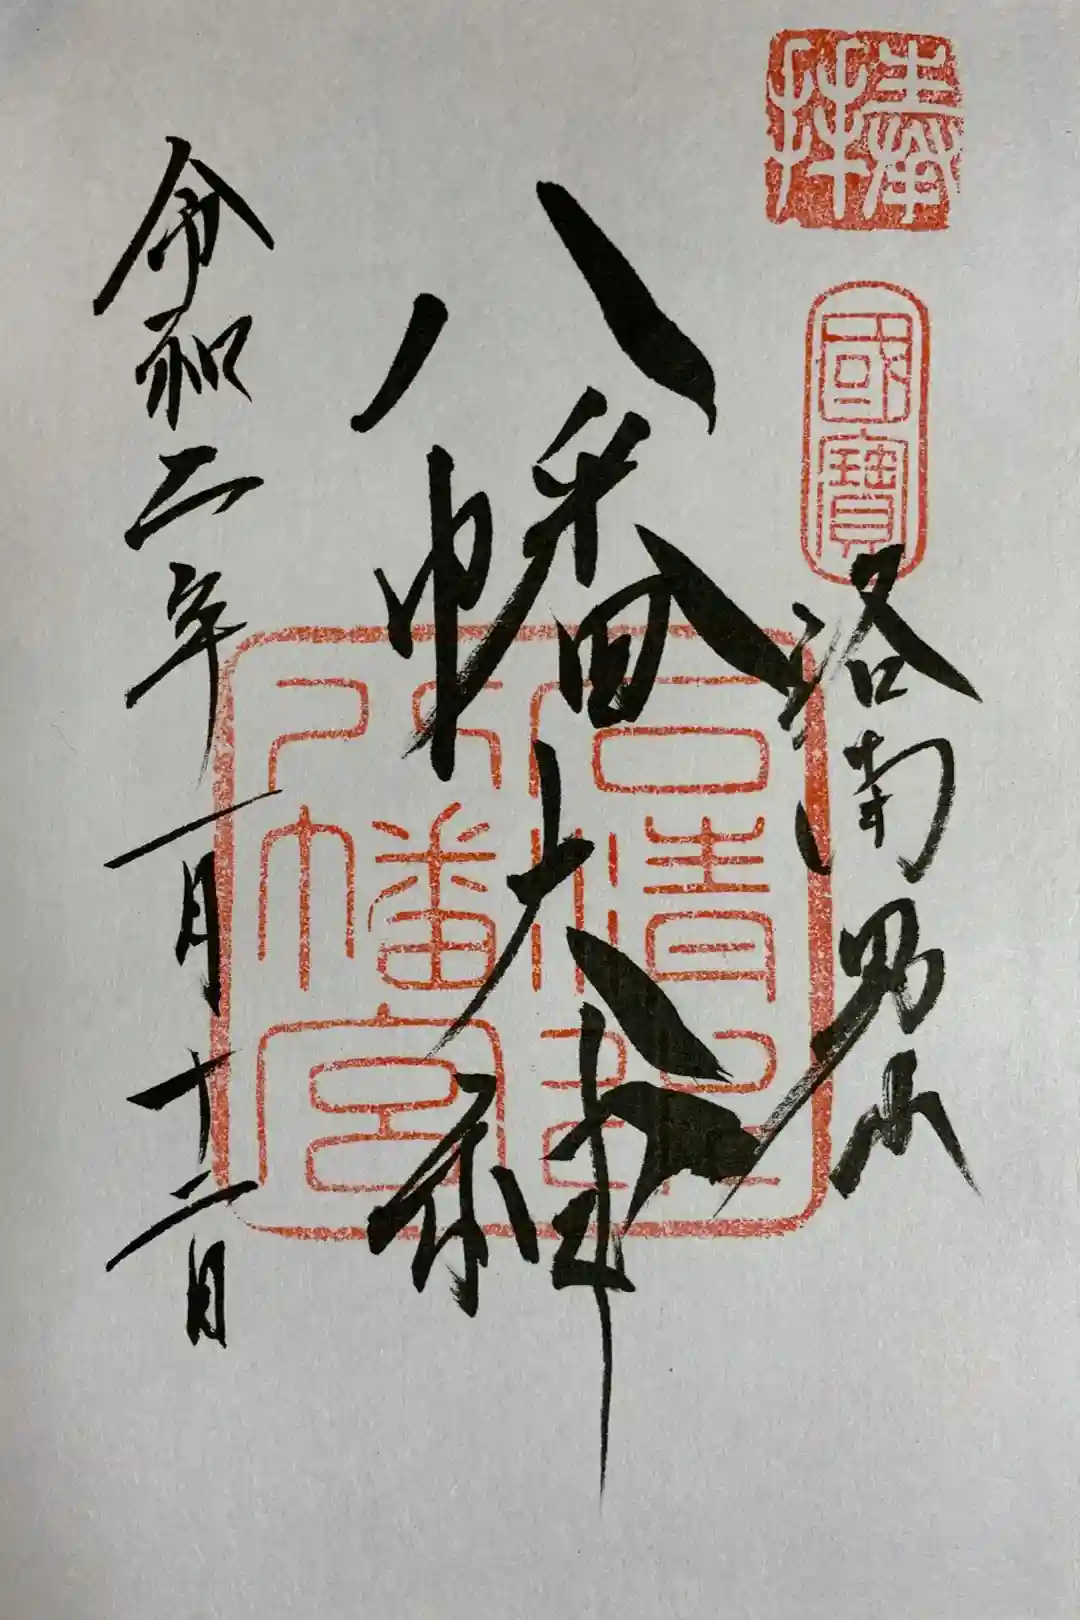 奉拝
國寶
洛南男山
八幡大神
石清水八幡宮
令和二年一月十二日